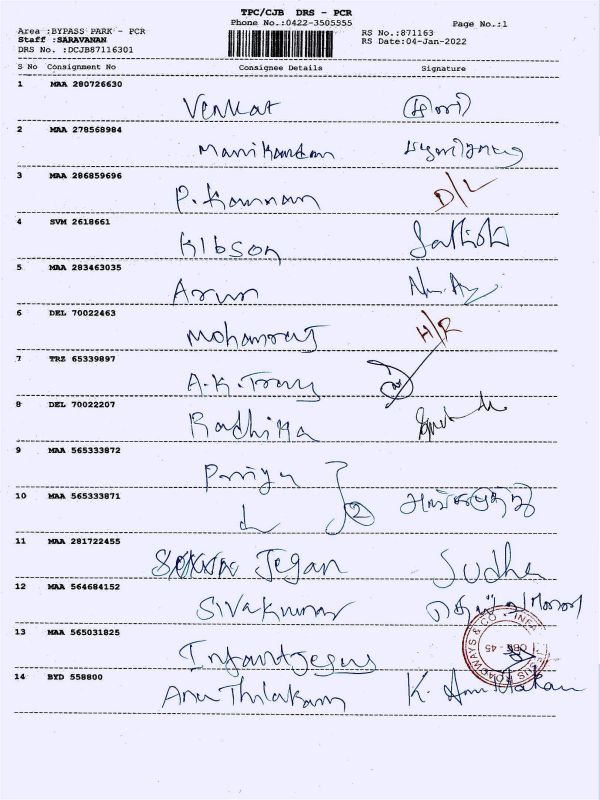 TPC/CJB DRS - PCR
Phone No.:0422-3505555
Page No.:1
Area :BYPASS PARK - PCR
RS No.:871163
Staff :SARAVANAN
RS Date:04-Jan-2022
DRS No. :DCJB87116301
S No Consignment No Consignee Details Signature
1 MAA 280726630
Venkat
2 MAA 278568984
Manikandan
3 MAA 286859696
P. Kannan D/L
4 SVM 2618661
Kibson Sathish
5 MAA 283463035
Arun
6 DEL 70022463
Mohanraj H/R
7 TRZ 65339897
A.K.
8 DEL 70022207
Radhika
9 MAA 565333872
Priya
10 MAA 565333871
2
11 MAA 281722455
Jegan Sudha
12 MAA 564684152
Sivakumar
13 MAA 565031825
Infantjesus
14 BYD 558800
Anu Thilakam K.